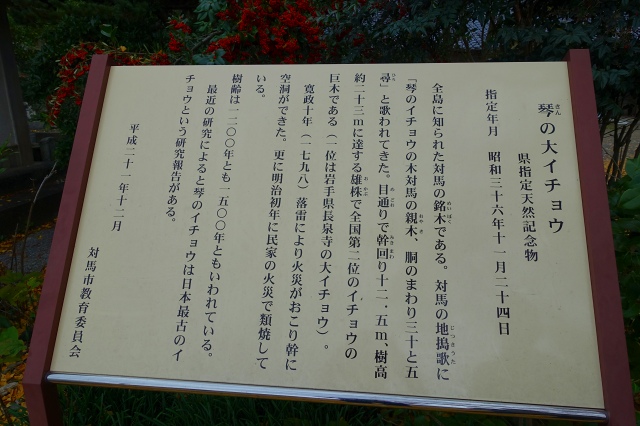 琴の大イチョウ
きん
県指定天然記念物
指定年月　昭和三十六年十一月二十四日
全島に知られた対馬の銘木である。対馬の地搗歌に
めいぼく
じつきうた
『琴のイチョウの木対馬の親木、胴のまわり三十と五
おやぎ
尋』と歌われてきた。目通りで幹回り十二・五ｍ、樹高
ひろ
めどおり
みきまわ
約二十三ｍに達する雄株で全国第二位のイチョウの
おかぶ
巨木である（一位は岩手県長泉寺の大イチョウ）。
寛政十年（一七九八）落雷により火災がおこり幹に
空洞ができた。更に明治初年に民家の火災で類焼して
いる。
樹齢は一二〇〇年とも一五〇〇年ともいわれている。
最近の研究によると琴のイチョウは日本最古のイ
チョウという研究報告がある。
平成二十一年十二月
対馬市教育委員会